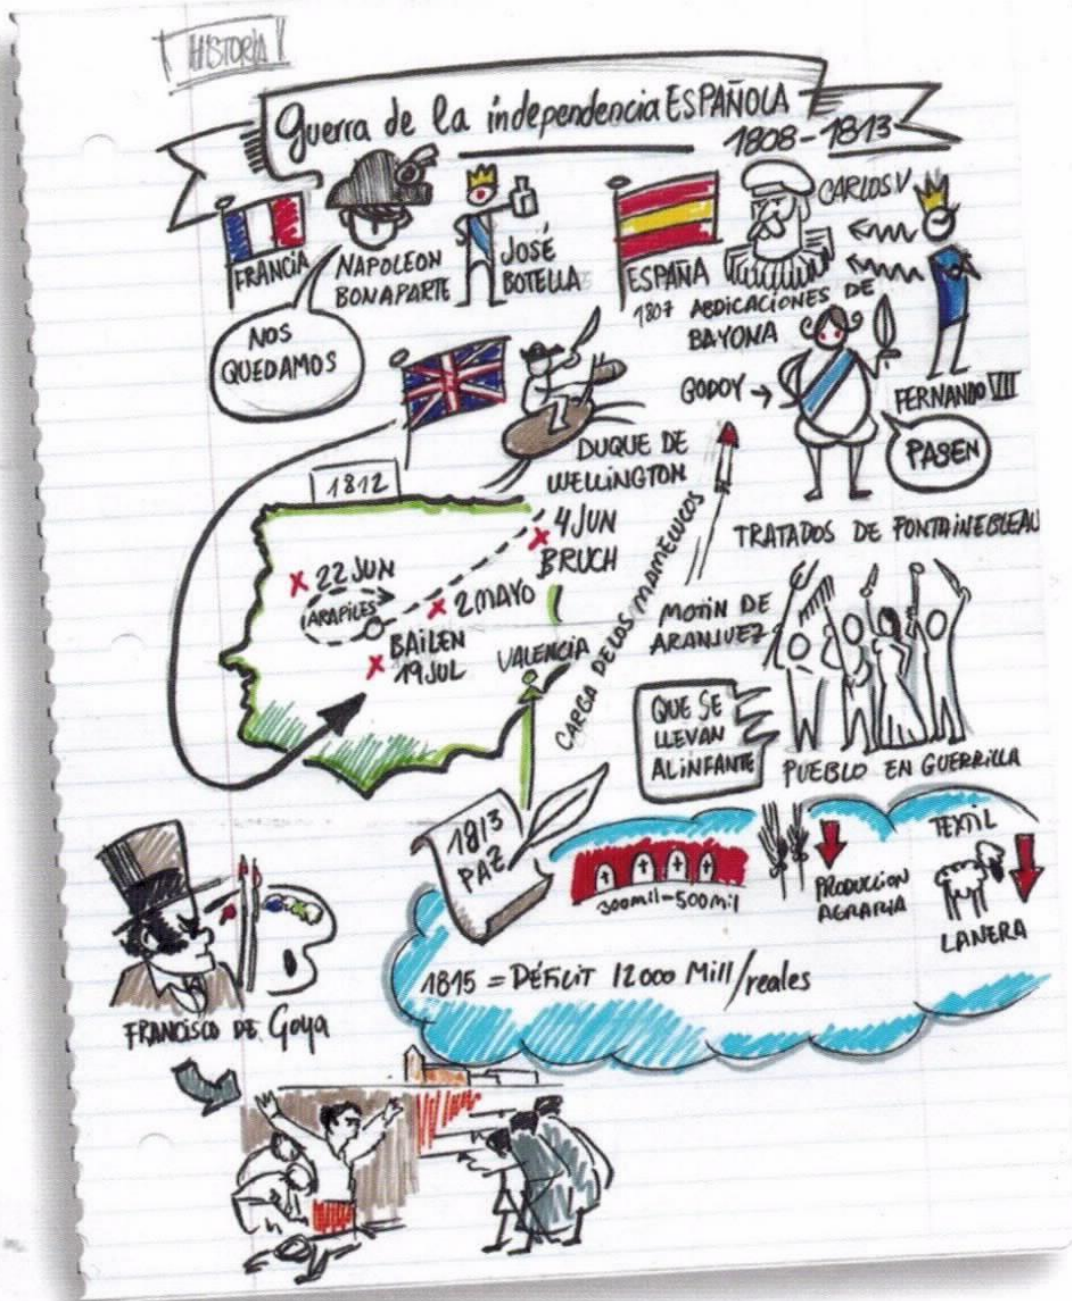 HISTORIA
Guerra de la independencia ESPAÑOLA
1808-1813
FRANCIA
NAPOLEON
BONAPARTE
JOSÉ
BOTELLA
NOS
QUEDAMOS
ESPAÑA
CARLOS V
1807 ABDICACIONES DE
BAYONA
GODOY
FERNANDO VII
PASEN
DUQUE DE
WELLINGTON
TRATADOS DE FONTAINEBLEAU
1812
4 JUN
BRUCH
22 JUN
ARAPILES
2 MAYO
BAILEN
19 JUL
VALENCIA
CARGA DE LOS MAMELUCOS
MOTIN DE
ARANJUEZ
QUE SE
LLEVAN
AL INFANTE
PUEBLO EN GUERRILLA
1813
PAZ
300mil-500mil
PRODUCCION
AGRARIA
TEXTIL
LANERA
1815 = DÉFICIT 12000 Mill/reales
FRANCISCO DE Goya